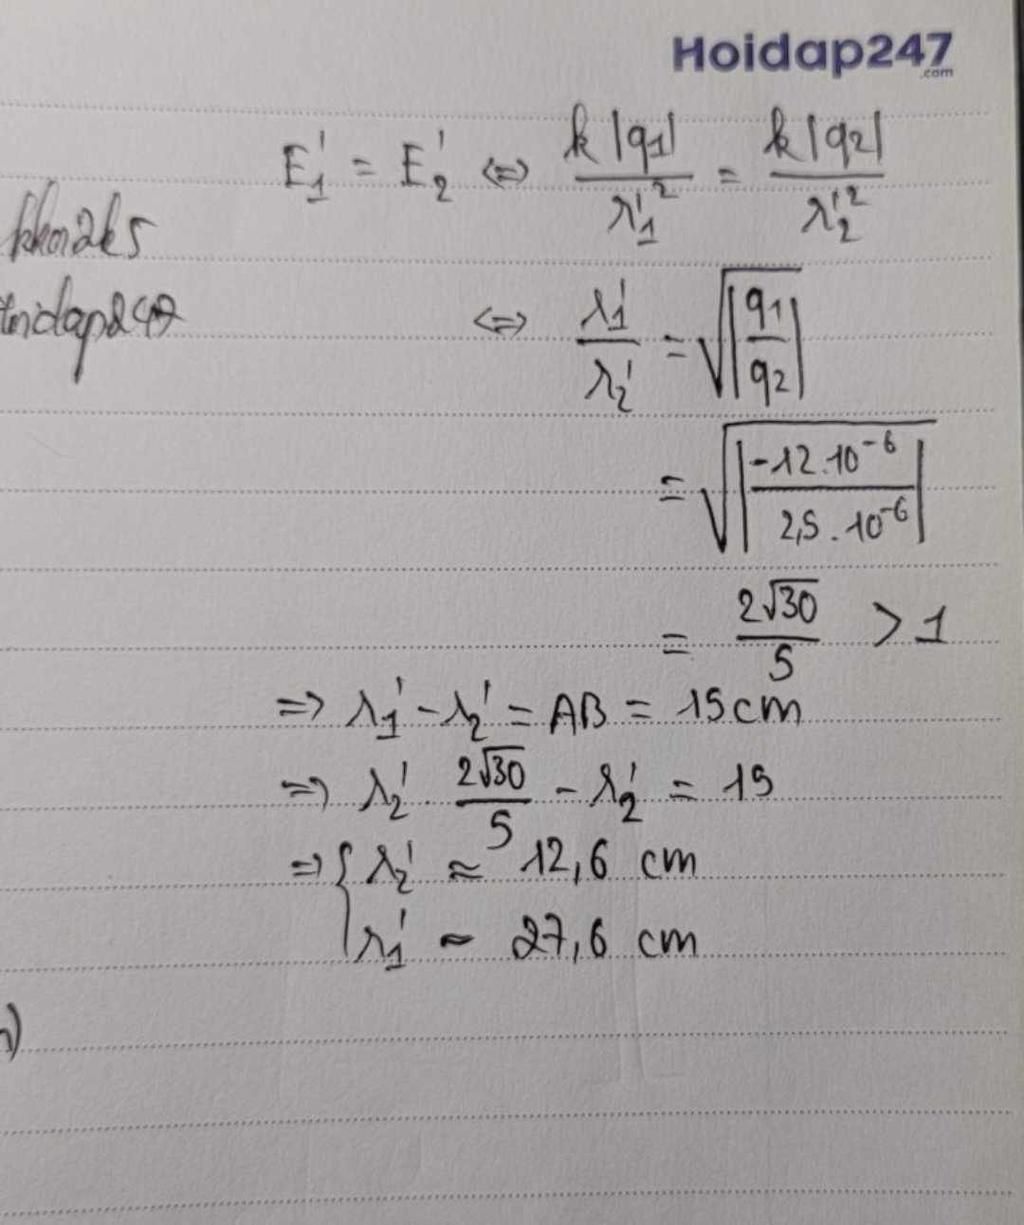 Hoidap247
.com
E₁' = E₂' <=> k|q₁| / r₁'² = k|q₂| / r₂'²
<=> r₁' / r₂' = √|q₁ / q₂|
= √|-12.10⁻⁶ / 2,5.10⁻⁶|
= 2√30 / 5 > 1
=> r₁' - r₂' = AB = 15cm
=> r₂' . 2√30 / 5 - r₂' = 15
=> { r₂' ≈ 12,6 cm
r₁' ~ 27,6 cm